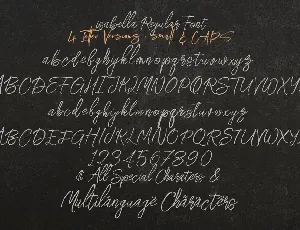 isabella Regular Font
4 Fonts Versions, Small & CAPS
abcdefghyklmnopqrstuvwxyz
ABCDEFGHIJKLMNOPQRSTUVWXYZ
abcdefghyklmnopqrstuvwxyz
ABCDEFGHIJKLMNOPQRSTUVWXYZ
1234567890
& All Special Charaters &
Multilanguage Characters